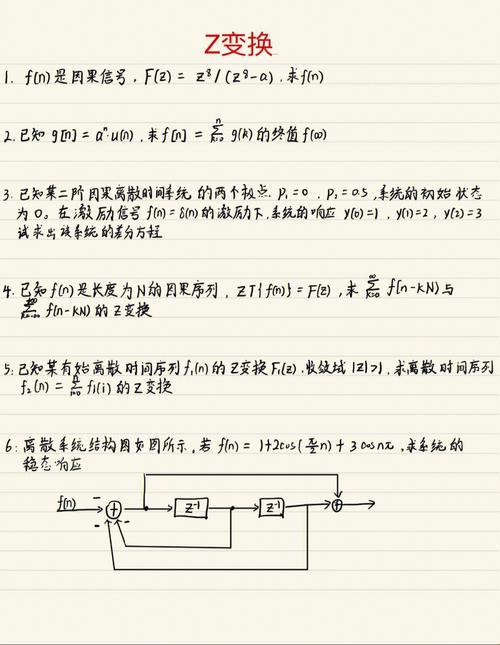 Z变换
1. f(n)是因果信号, F(z) = z⁸/(z⁸-a), 求f(n)
2. 已知 g[n] = aⁿ·u(n), 求 f[n] = Σⁿₖ₌₀ g(k) 的终值 f(∞)
3. 已知某二阶因果离散时间系统的两个极点 P₁=0, P₂=0.5, 系统的初始状态
为0。在激励信号 f(n)=δ(n)的激励下, 系统的响应 y(0)=1, y(1)=2, y(2)=3
试求出该系统的差分方程
4. 已知f(n)是长度为N的因果序列, ZT{f(n)}=F(z), 求 Σ^∞ₖ₌₀ f[n-kN]与
f(n-kN) 的Z变换
5. 已知某有始离散时间序列f₁(n)的Z变换F₁(z), 收敛域|z|>1, 求离散时间序列
f₂(n) = Σⁿᵢ₌₀ f₁(i) 的Z变换
6: 离散系统结构图如图所示, 若 f(n) = 1+2cos(π/2 n) + 3cosnπ, 求系统的
稳态响应
f(n) - + z⁻¹ z⁻¹ +
- -